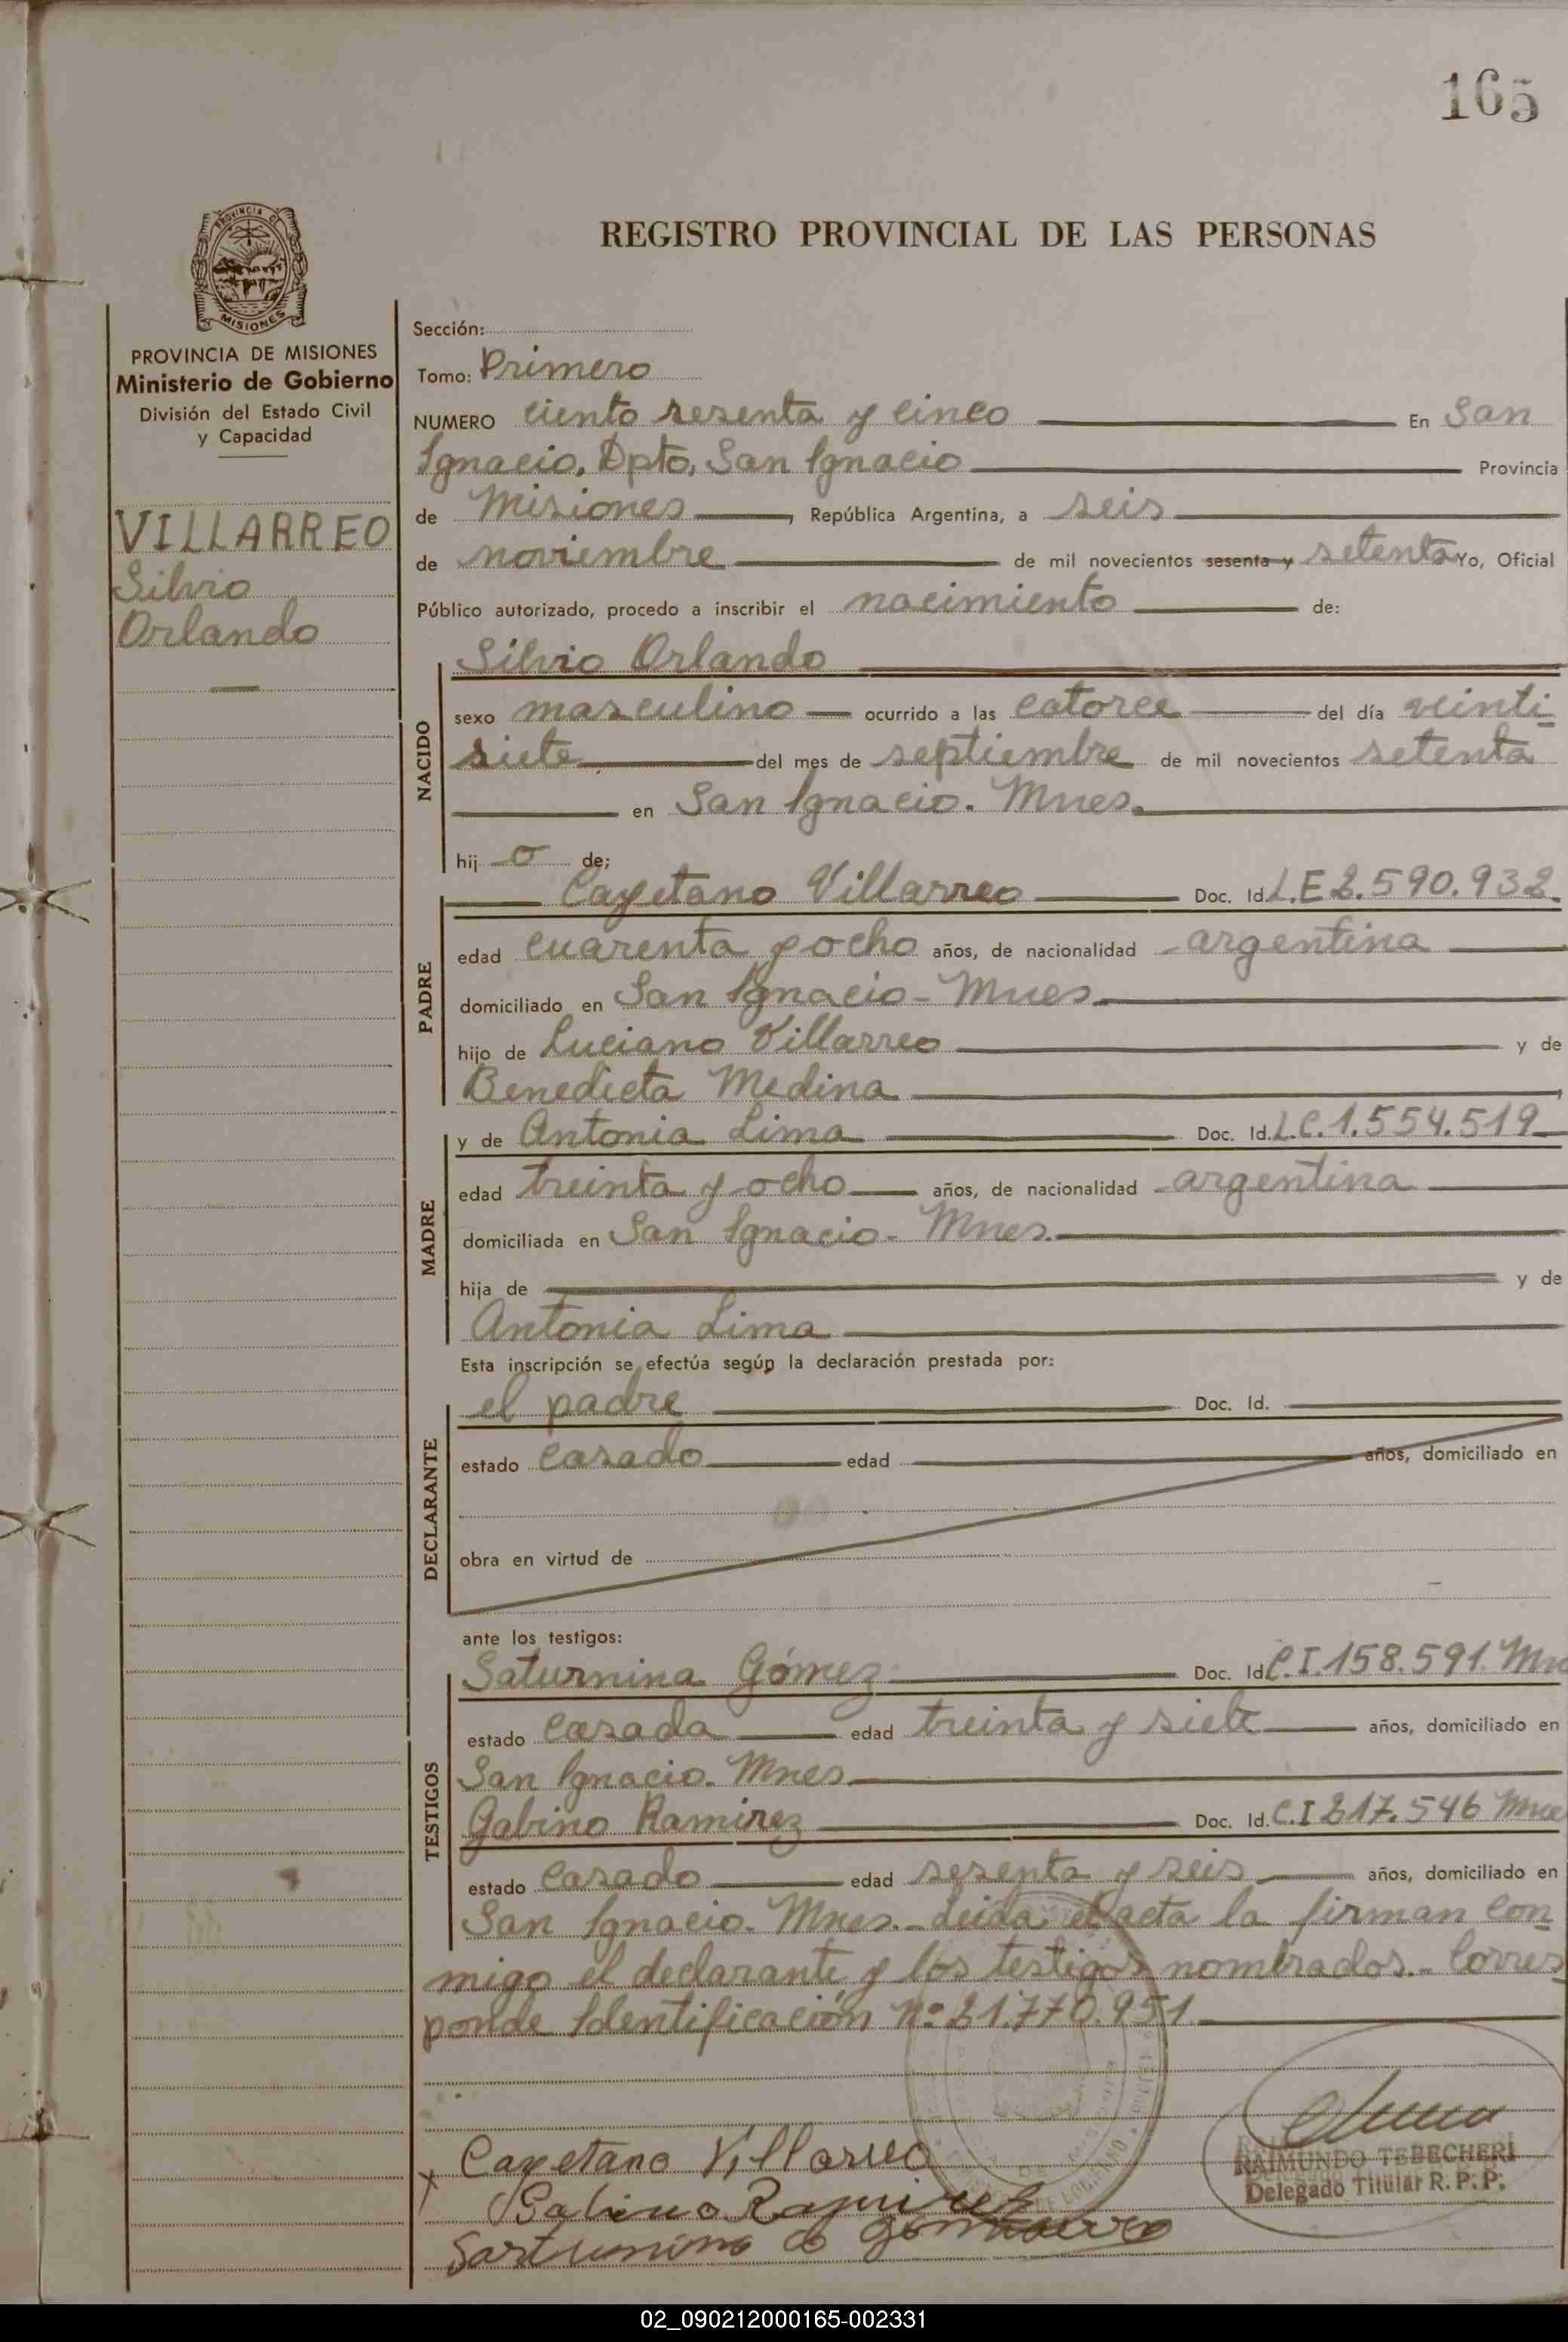 165
PROVINCIA DE
MISIONES
PROVINCIA DE MISIONES
Ministerio de Gobierno
División del Estado Civil
y Capacidad
VILLARREO
Silvio
Orlando
REGISTRO PROVINCIAL DE LAS PERSONAS
Sección:
Tomo: Primero
NUMERO ciento sesenta y cinco En San
Ignacio, Dpto, San Ignacio Provincia
de Misiones, República Argentina, a seis
de noviembre de mil novecientos sesenta y setenta Yo, Oficial
Público autorizado, procedo a inscribir el nacimiento de:
NACIDO
Silvio Orlando
sexo masculino ocurrido a las catorce del día veinti
siete del mes de septiembre de mil novecientos setenta
en San Ignacio. Mnes.
hij o de:
PADRE
Cayetano Villarreo Doc. Id. L.E 2.590.932.
edad cuarenta y ocho años, de nacionalidad argentina
domiciliado en San Ignacio - Mnes.
hijo de Luciano Villarreo y de
Benedicta Medina
MADRE
y de Antonia Lima Doc. Id. L.C. 1.554.519
edad treinta y ocho años, de nacionalidad argentina
domiciliada en San Ignacio - Mnes.
hija de y de
Antonia Lima
Esta inscripción se efectúa según la declaración prestada por:
DECLARANTE
el padre Doc. Id.
estado casado edad años, domiciliado en
obra en virtud de
ante los testigos:
TESTIGOS
Saturnina Gómez Doc. Id. C.I. 158.591. Mn
estado casada edad treinta y siete años, domiciliado en
San Ignacio. Mnes.
Gabino Ramirez Doc. Id. C.I 217.546 Mne
estado casado edad sesenta y seis años, domiciliado en
San Ignacio. Mnes. - Leida el acta la firman con
migo el declarante y los testigos nombrados. - Corres
ponde Identificación nº 21.770.951.
Cayetano Villarreo
Gabino Ramirez
RAIMUNDO TEBECHERI
Delegado Titular R. P. P.
02_090212000165-002331